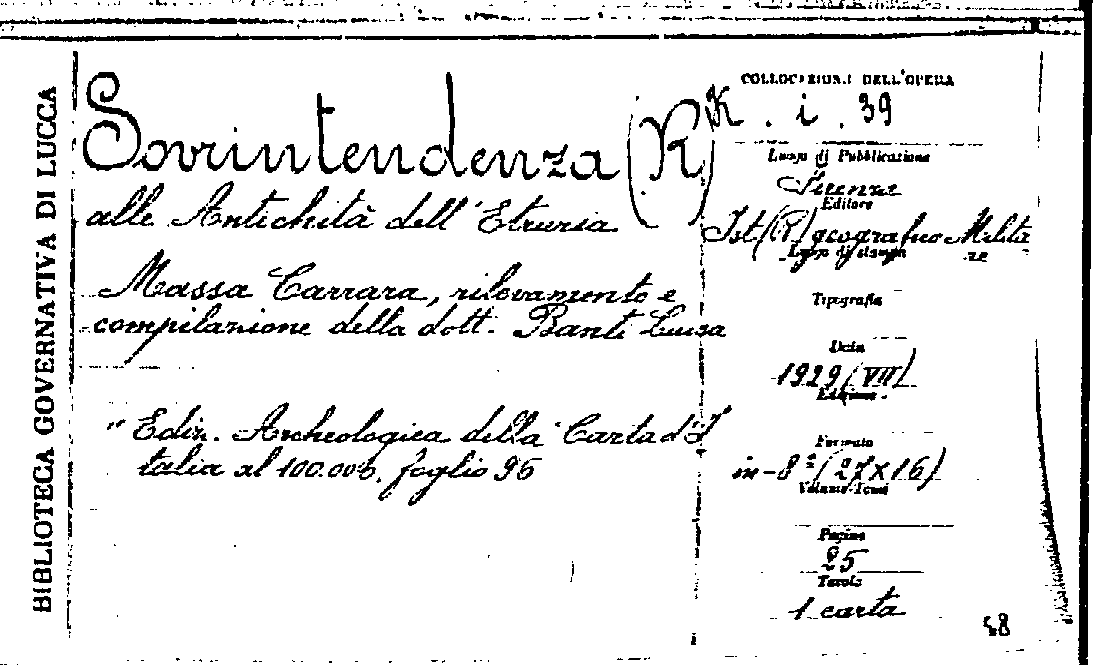 BIBLIOTECA GOVERNATIVA DI LUCCA
Sovrintendenza (R)
alle Antichità dell'Etruria
Massa Carrara, rilevamento e
compilazione della dott. Banti Luisa
"Ediz. Archeologica della Carta d'I
talia al 100.000, foglio 96
COLLOCAZIONE DELL'OPERA
K . i . 39
Luogo di Pubblicazione
Firenze
Editore
Ist (R) geografico Milita
re
Luogo di stampa
Tipografia
Data
1929 (VII)
Edizione
Formato
in-8º (27×16)
Volume-Tomi
Pagine
25
Tavole
1 carta
48